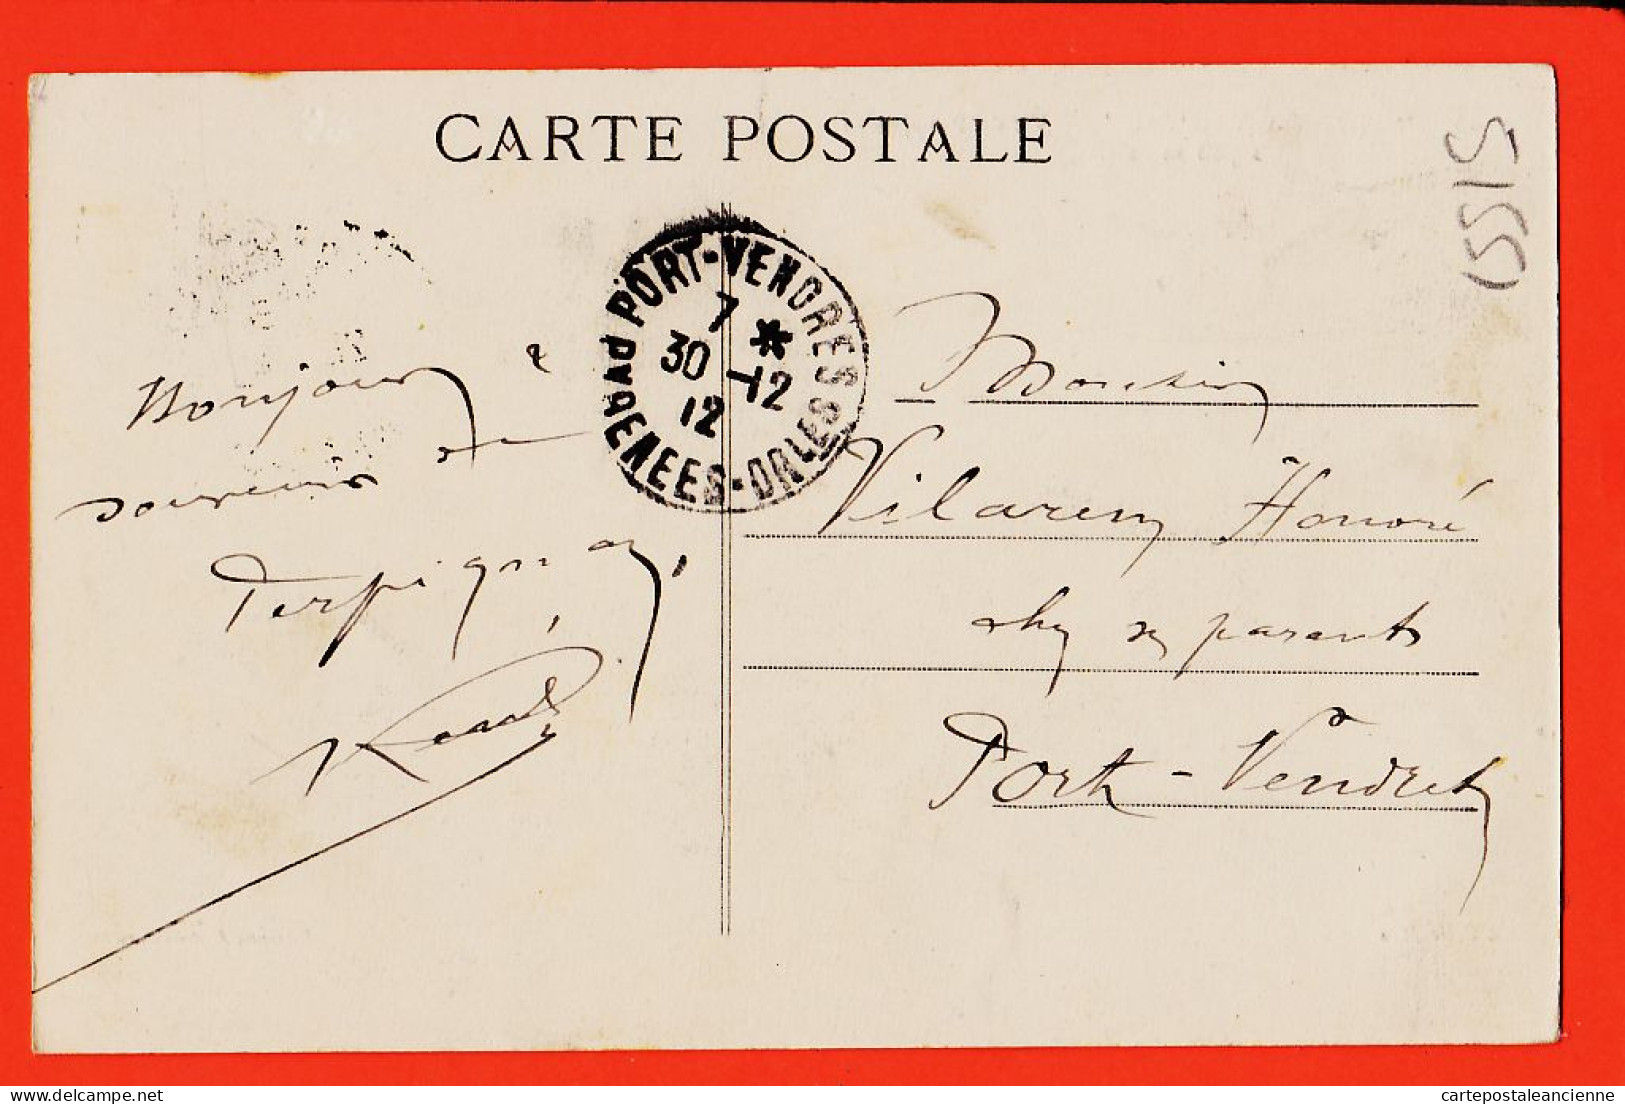 CARTE POSTALE
15515
PORT-VENDRES
PYRENEES-ORLES
7 *
30 -12
12
Bonjour &
souvenir de
Perpignan,
Monsieur
Vilarem Honoré
chez ses parents
Port-Vendres
cartepostaleancienne